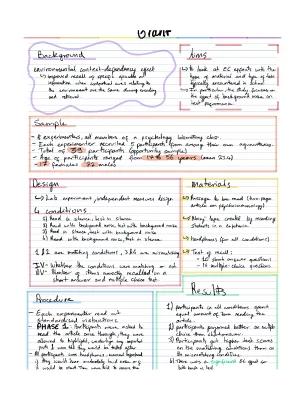 Grant
Background
environmental context-dependency effect
↳ improved recall of specific episodes or
information when contextual cues relating to
the environment are the same during encoding
and retrieval.
Aims
↳ To look at CC effects with the
type of material and type of tests
typically encountered in school
↳ In particular, the study focuses on
the effect of background noise on
test performance.
Sample
- 8 experimenters, all members of a psychology laboratory class.
- Each experimenter recruited 5 participants from among their own aquaintances.
- Total of 39 participants (opportunity sample)
- Age of participants ranged from 17 to 56 years (mean 23.4)
- 17 females 23 males
Design
↳ Lab experiment, independent measures design.
4 conditions
1) Read in silence, test in silence
2) Read with background noise, test with background noise
3) Read in silence, test with background noise
4) Read with background noise, test in silence
1 & 2 are matching conditions, 3 & 4 are mismatching
IV - Whether the conditions were matching or not
DV - Number of items correctly recalled on a
short answer and multiple choice test.
Materials
↳ Passage to be read (two page
article on psychoimmunology)
↳ 'Noisy' tape created by recording
students in a cafeteria
↳ Headphones (for all conditions)
↳ Test of recall:
- 10 short answer questions
- 16 multiple choice questions
Procedure
- Each experimenter read out
standardised instructions
PHASE 1: Participants were asked to
read the article once through, they were
allowed to highlight, underline any important
part & were told they would be tested after
- All participants wore headphones & warned
they would hear moderately loud noise or
Results
1) Participants in all conditions spent
equal amount of time reading the
article.
2) Participants performed better on multiple
choice than
3) Participants got higher test scores
on the matching conditions than on
the mismatching condition.
4) There was a significant